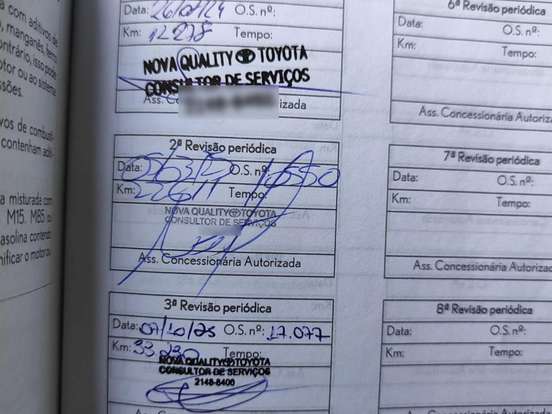 com aditivos de
, manganês, ferro
ontrário, isso pode
otor ou ao sistema
ssões.
vos de combustí-
contenham aditi-
a misturada com
M15, M85 ou
asolina contendo
nificar o motor ou
Data: 26/01/24 O.S. nº:
Km: 12 278 Tempo:
NOVA QUALITY TOYOTA
CONSULTOR DE SERVIÇOS
Ass. izada
2ª Revisão periódica
Data: O.S. nº:
Km: Tempo:
NOVA QUALITY TOYOTA
CONSULTOR DE SERVIÇOS
Ass. Concessionária Autorizada
3ª Revisão periódica
Data: 07/10/25 O.S. nº: 17.077
Km: 33 230 Tempo:
NOVA QUALITY TOYOTA
CONSULTOR DE SERVIÇOS
2148-8400
6ª Revisão periódica
Data: O.S. nº:
Km: Tempo:
Ass. Concessionária Autorizada
7ª Revisão periódica
Data: O.S. nº:
Km: Tempo:
Ass. Concessionária Autorizada
8ª Revisão periódica
Data: O.S. nº:
Km: Tempo:
Ass. Concessionária Autorizada